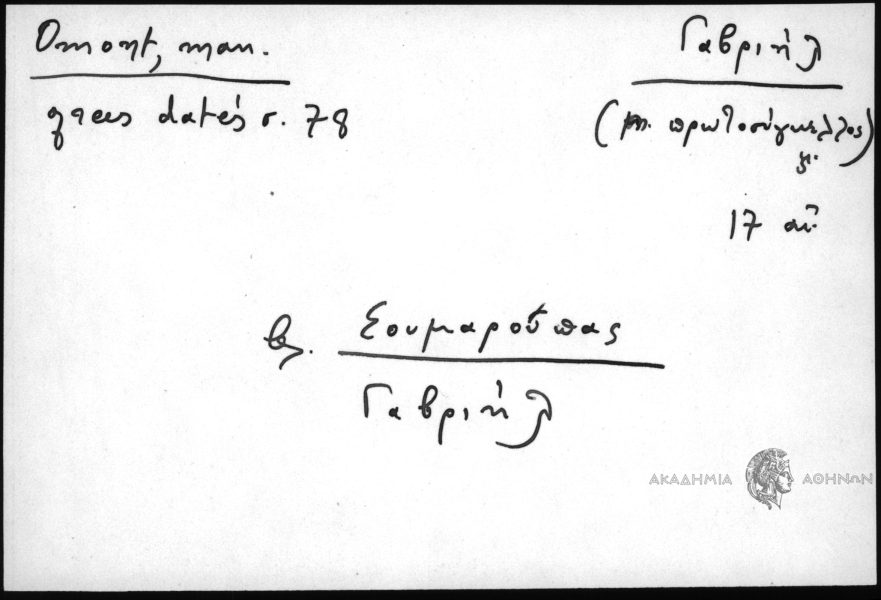 Omont, man.
grecs datés σ. 78
Γαβριήλ
(μ. πρωτοσύγκελλος)
17 αἰ.
βλ. Σουμαρούπας
Γαβριήλ
ΑΚΑΔΗΜΙΑ ΑΘΗΝΩΝ